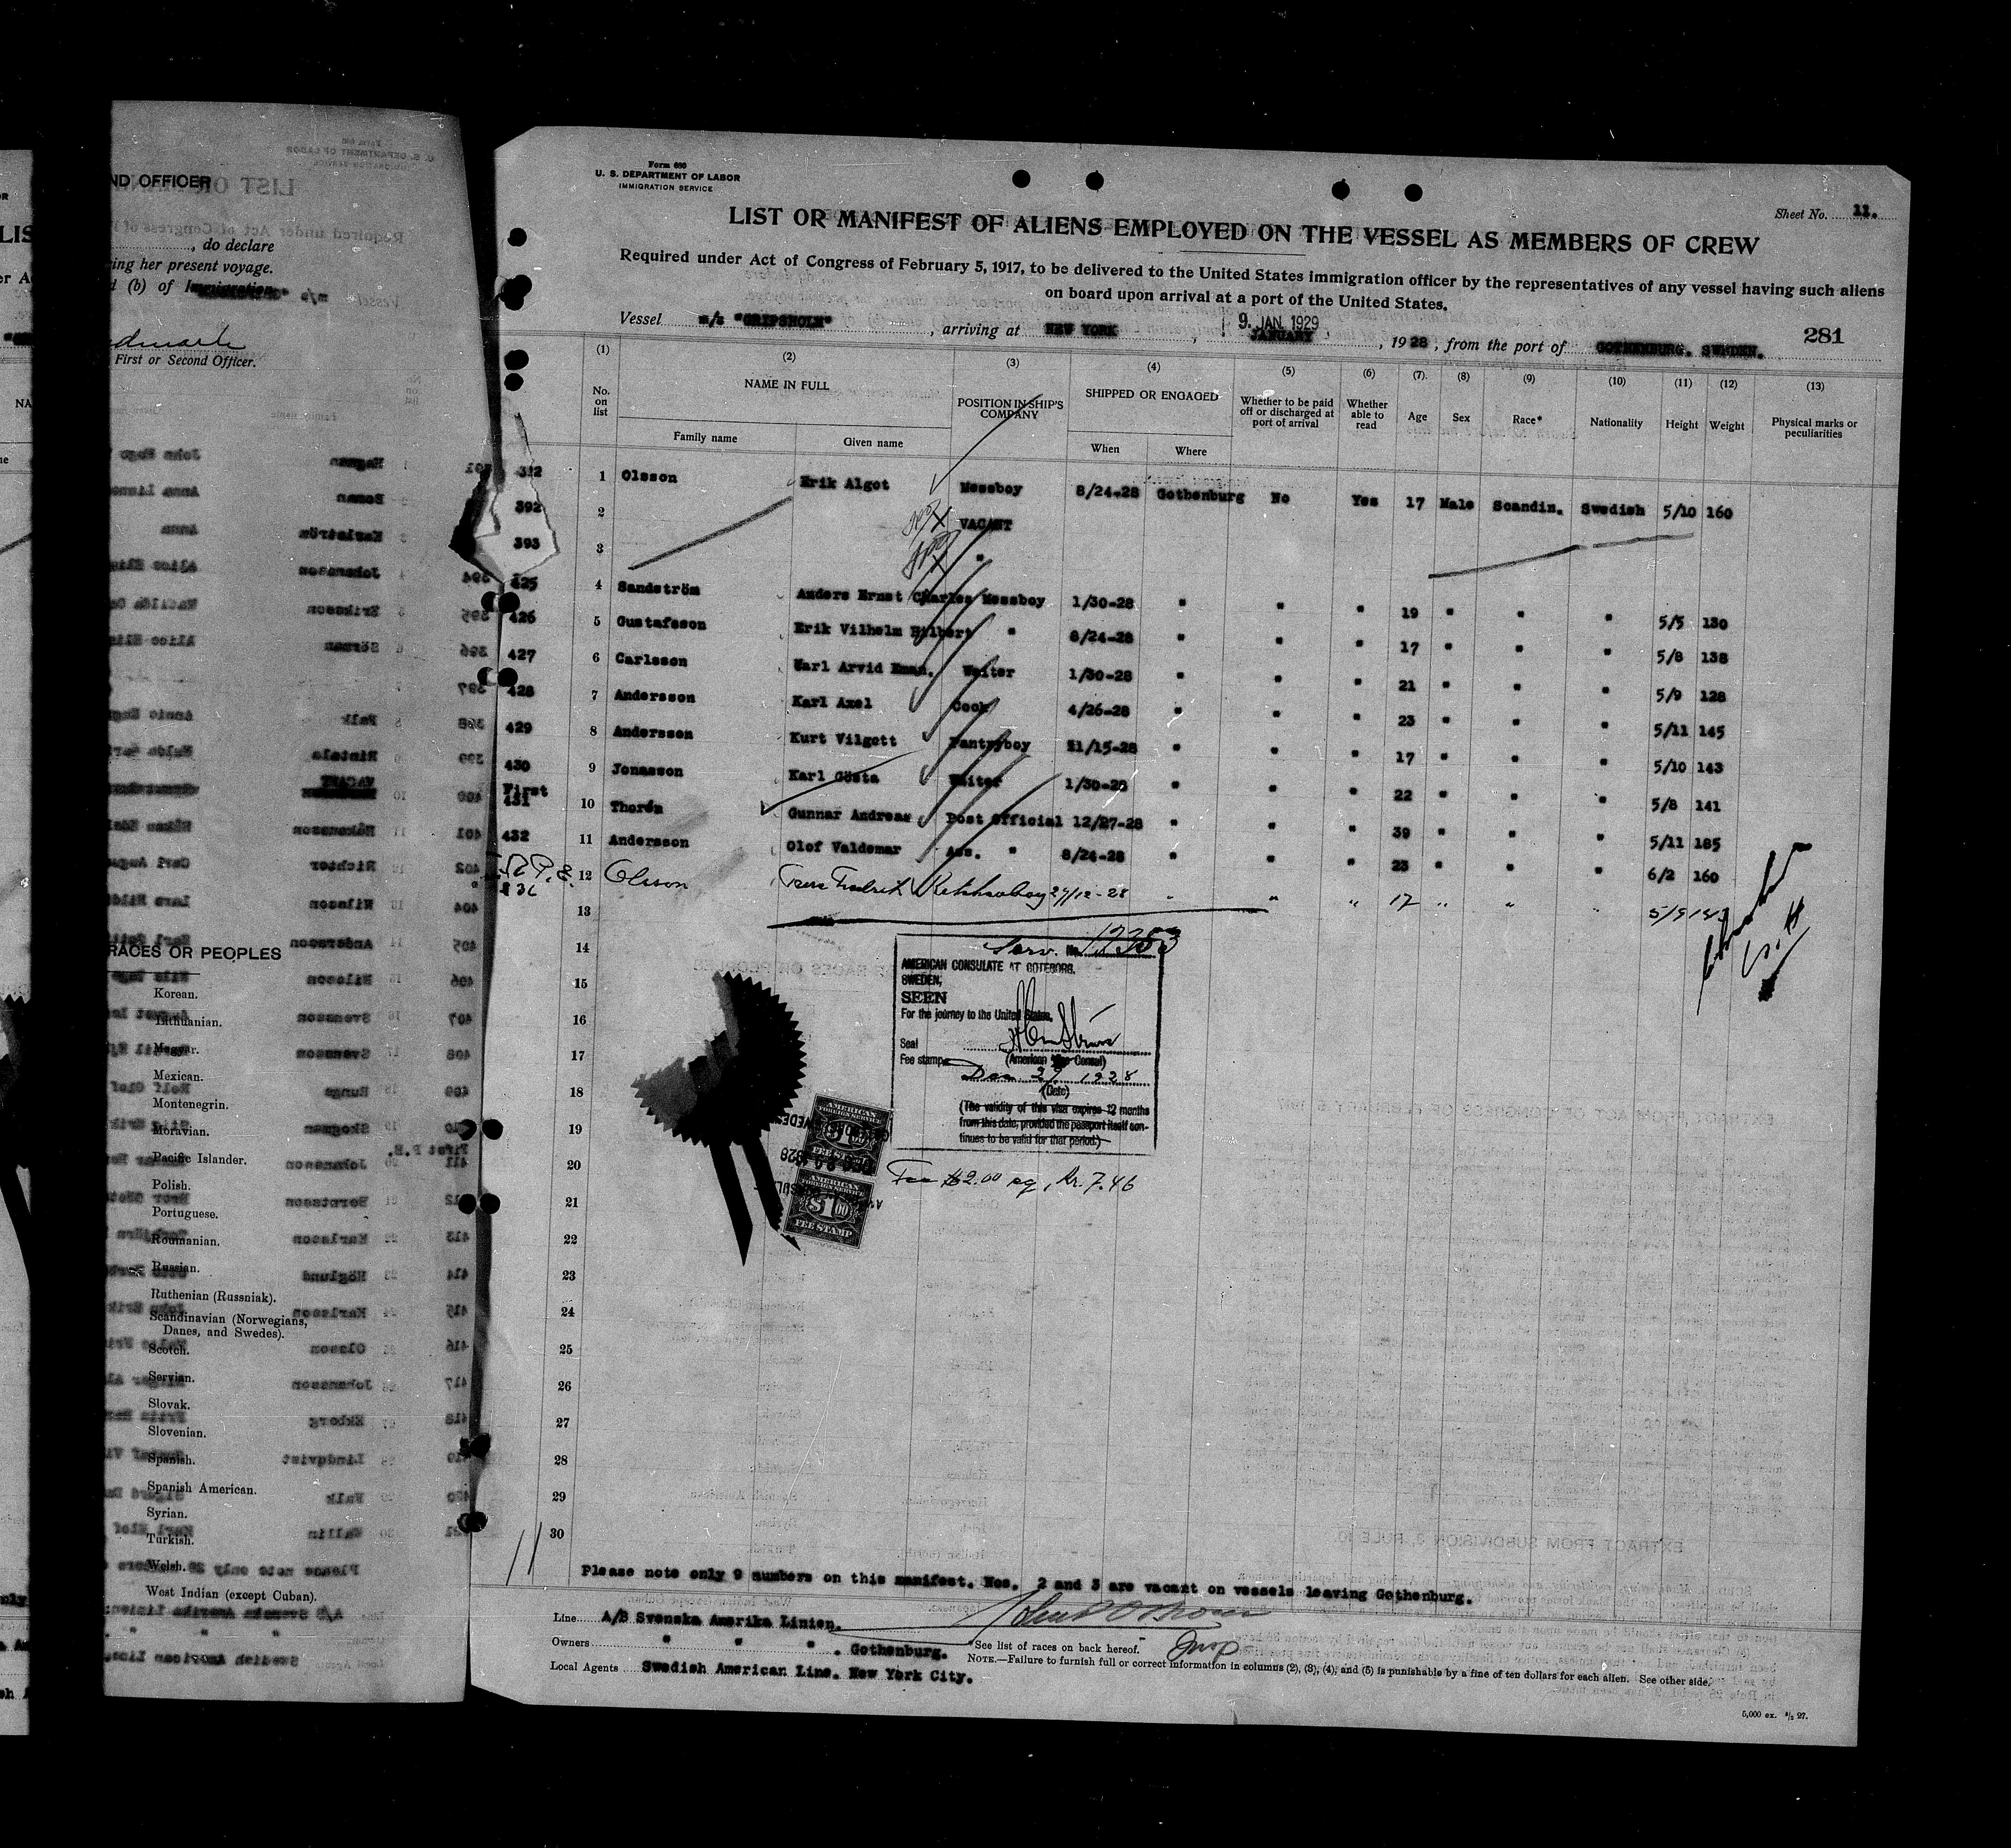 ND OFFICER
, do declare
ing her present voyage.
d (b) of Immigration
First or Second Officer.
RACES OR PEOPLES
Korean.
Lithuanian.
Magyar.
Mexican.
Montenegrin.
Moravian.
Pacific Islander.
Polish.
Portuguese.
Roumanian.
Russian.
Ruthenian (Russniak).
Scandinavian (Norwegians,
Danes, and Swedes).
Scotch.
Servian.
Slovak.
Slovenian.
Spanish.
Spanish American.
Syrian.
Turkish.
Welsh.
West Indian (except Cuban).
Form 680
U. S. DEPARTMENT OF LABOR
IMMIGRATION SERVICE
Sheet No. 11.
LIST OR MANIFEST OF ALIENS EMPLOYED ON THE VESSEL AS MEMBERS OF CREW
Required under Act of Congress of February 5, 1917, to be delivered to the United States immigration officer by the representatives of any vessel having such aliens
on board upon arrival at a port of the United States.
9. JAN. 1929
Vessel m/s "GRIPSHOLM", arriving at NEW YORK, JANUARY, 1928, from the port of GOTHENBURG. SWEDEN.
281
(1) (2) (3) (4) (5) (6) (7) (8) (9) (10) (11) (12) (13)
No. on list NAME IN FULL Family name Given name POSITION IN SHIP'S COMPANY SHIPPED OR ENGAGED When Where Whether to be paid off or discharged at port of arrival Whether able to read Age Sex Race* Nationality Height Weight Physical marks or peculiarities
312 1 Olsson Erik Algot Messboy 8/24-28 Gothenburg No Yes 17 Male Scandin. Swedish 5/10 160
392 2 VACANT
393 3 "
425 4 Sandström Anders Ernst Charles Messboy 1/30-28 " " " 19 " " " 5/5 130
426 5 Gustafsson Erik Vilhelm Hilbert " 8/24-28 " " " 17 " " " 5/8 138
427 6 Carlsson Karl Arvid Eman. Waiter 1/30-28 " " " 21 " " " 5/9 128
428 7 Andersson Karl Axel Cook 4/26-28 " " " 23 " " " 5/11 145
429 8 Andersson Kurt Vilgott Pantryboy 11/15-28 " " " 17 " " " 5/10 143
430 9 Jonasson Karl Gösta Waiter 1/30-28 " " " 22 " " " 5/8 141
First
431 10 Thorén Gunnar Andreas Post Official 12/27-28 " " " 39 " " " 5/11 185
432 11 Andersson Olof Valdemar Ass. " 8/24-28 " " " 23 " " " 6/2 160
12 Olsson Fredrik 27/12-28 " " " 17 " " "
13
14
15
16
17
18
19
20
21
22
23
24
25
26
27
28
29
30
Serv. No. 17353
AMERICAN CONSULATE AT GOTEBORG,
SWEDEN,
SEEN
For the journey to the United States.
Seal
Fee stamps
(American Vice Consul)
Dec. 27, 1928
(Date)
(The validity of this visa expires 12 months
from this date, provided the passport itself con-
tinues to be valid for that period.)
Fee $2.00 eq. Kr. 7.46
AMERICAN
FOREIGN SERVICE
$1 00
FEE STAMP
AMERICAN
FOREIGN SERVICE
$1 00
FEE STAMP
11
Please note only 9 numbers on this manifest. Nos. 2 and 3 are vacant on vessels leaving Gothenburg.
Line A/B Svenska Amerika Linien.
Owners " " " . Gothenburg.
Local Agents Swedish American Line. New York City.
*See list of races on back hereof.
NOTE.—Failure to furnish full or correct information in columns (2), (3), (4), and (5) is punishable by a fine of ten dollars for each alien. See other side.
5,000 ex. 3/2 27.